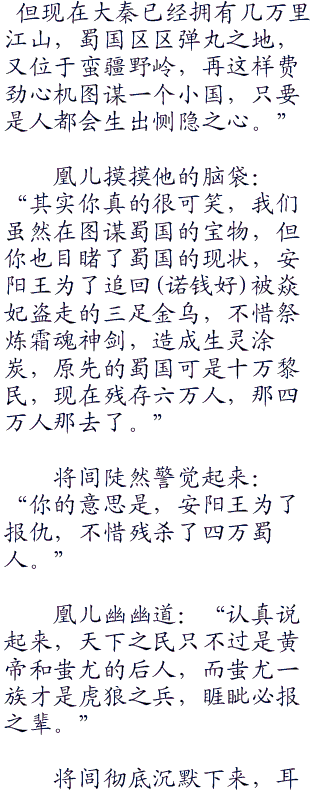 但现在大秦已经拥有几万里
江山，蜀国区区弹丸之地，
又位于蛮疆野岭，再这样费
劲心机图谋一个小国，只要
是人都会生出恻隐之心。”
凰儿摸摸他的脑袋：
“其实你真的很可笑，我们
虽然在图谋蜀国的宝物，但
你也目睹了蜀国的现状，安
阳王为了追回(诺钱好)被焱
妃盗走的三足金乌，不惜祭
炼霜魂神剑，造成生灵涂
炭，原先的蜀国可是十万黎
民，现在残存六万人，那四
万人那去了。”
将闾陡然警觉起来：
“你的意思是，安阳王为了
报仇，不惜残杀了四万蜀
人。”
凰儿幽幽道：“认真说
起来，天下之民只不过是黄
帝和蚩尤的后人，而蚩尤一
族才是虎狼之兵，睚眦必报
之辈。”
将闾彻底沉默下来，耳